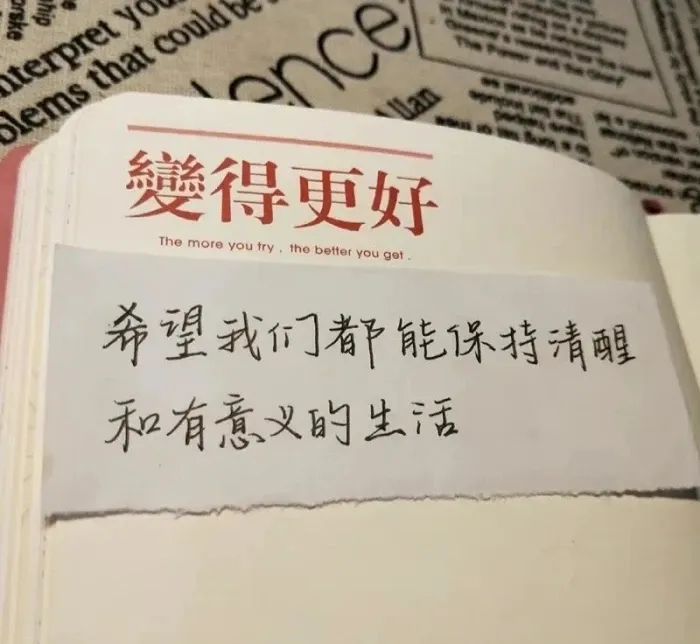 nterpret your
blems that could be
ence
變得更好
The more you try , the better you get .
希望我们都能保持清醒
和有意义的生活